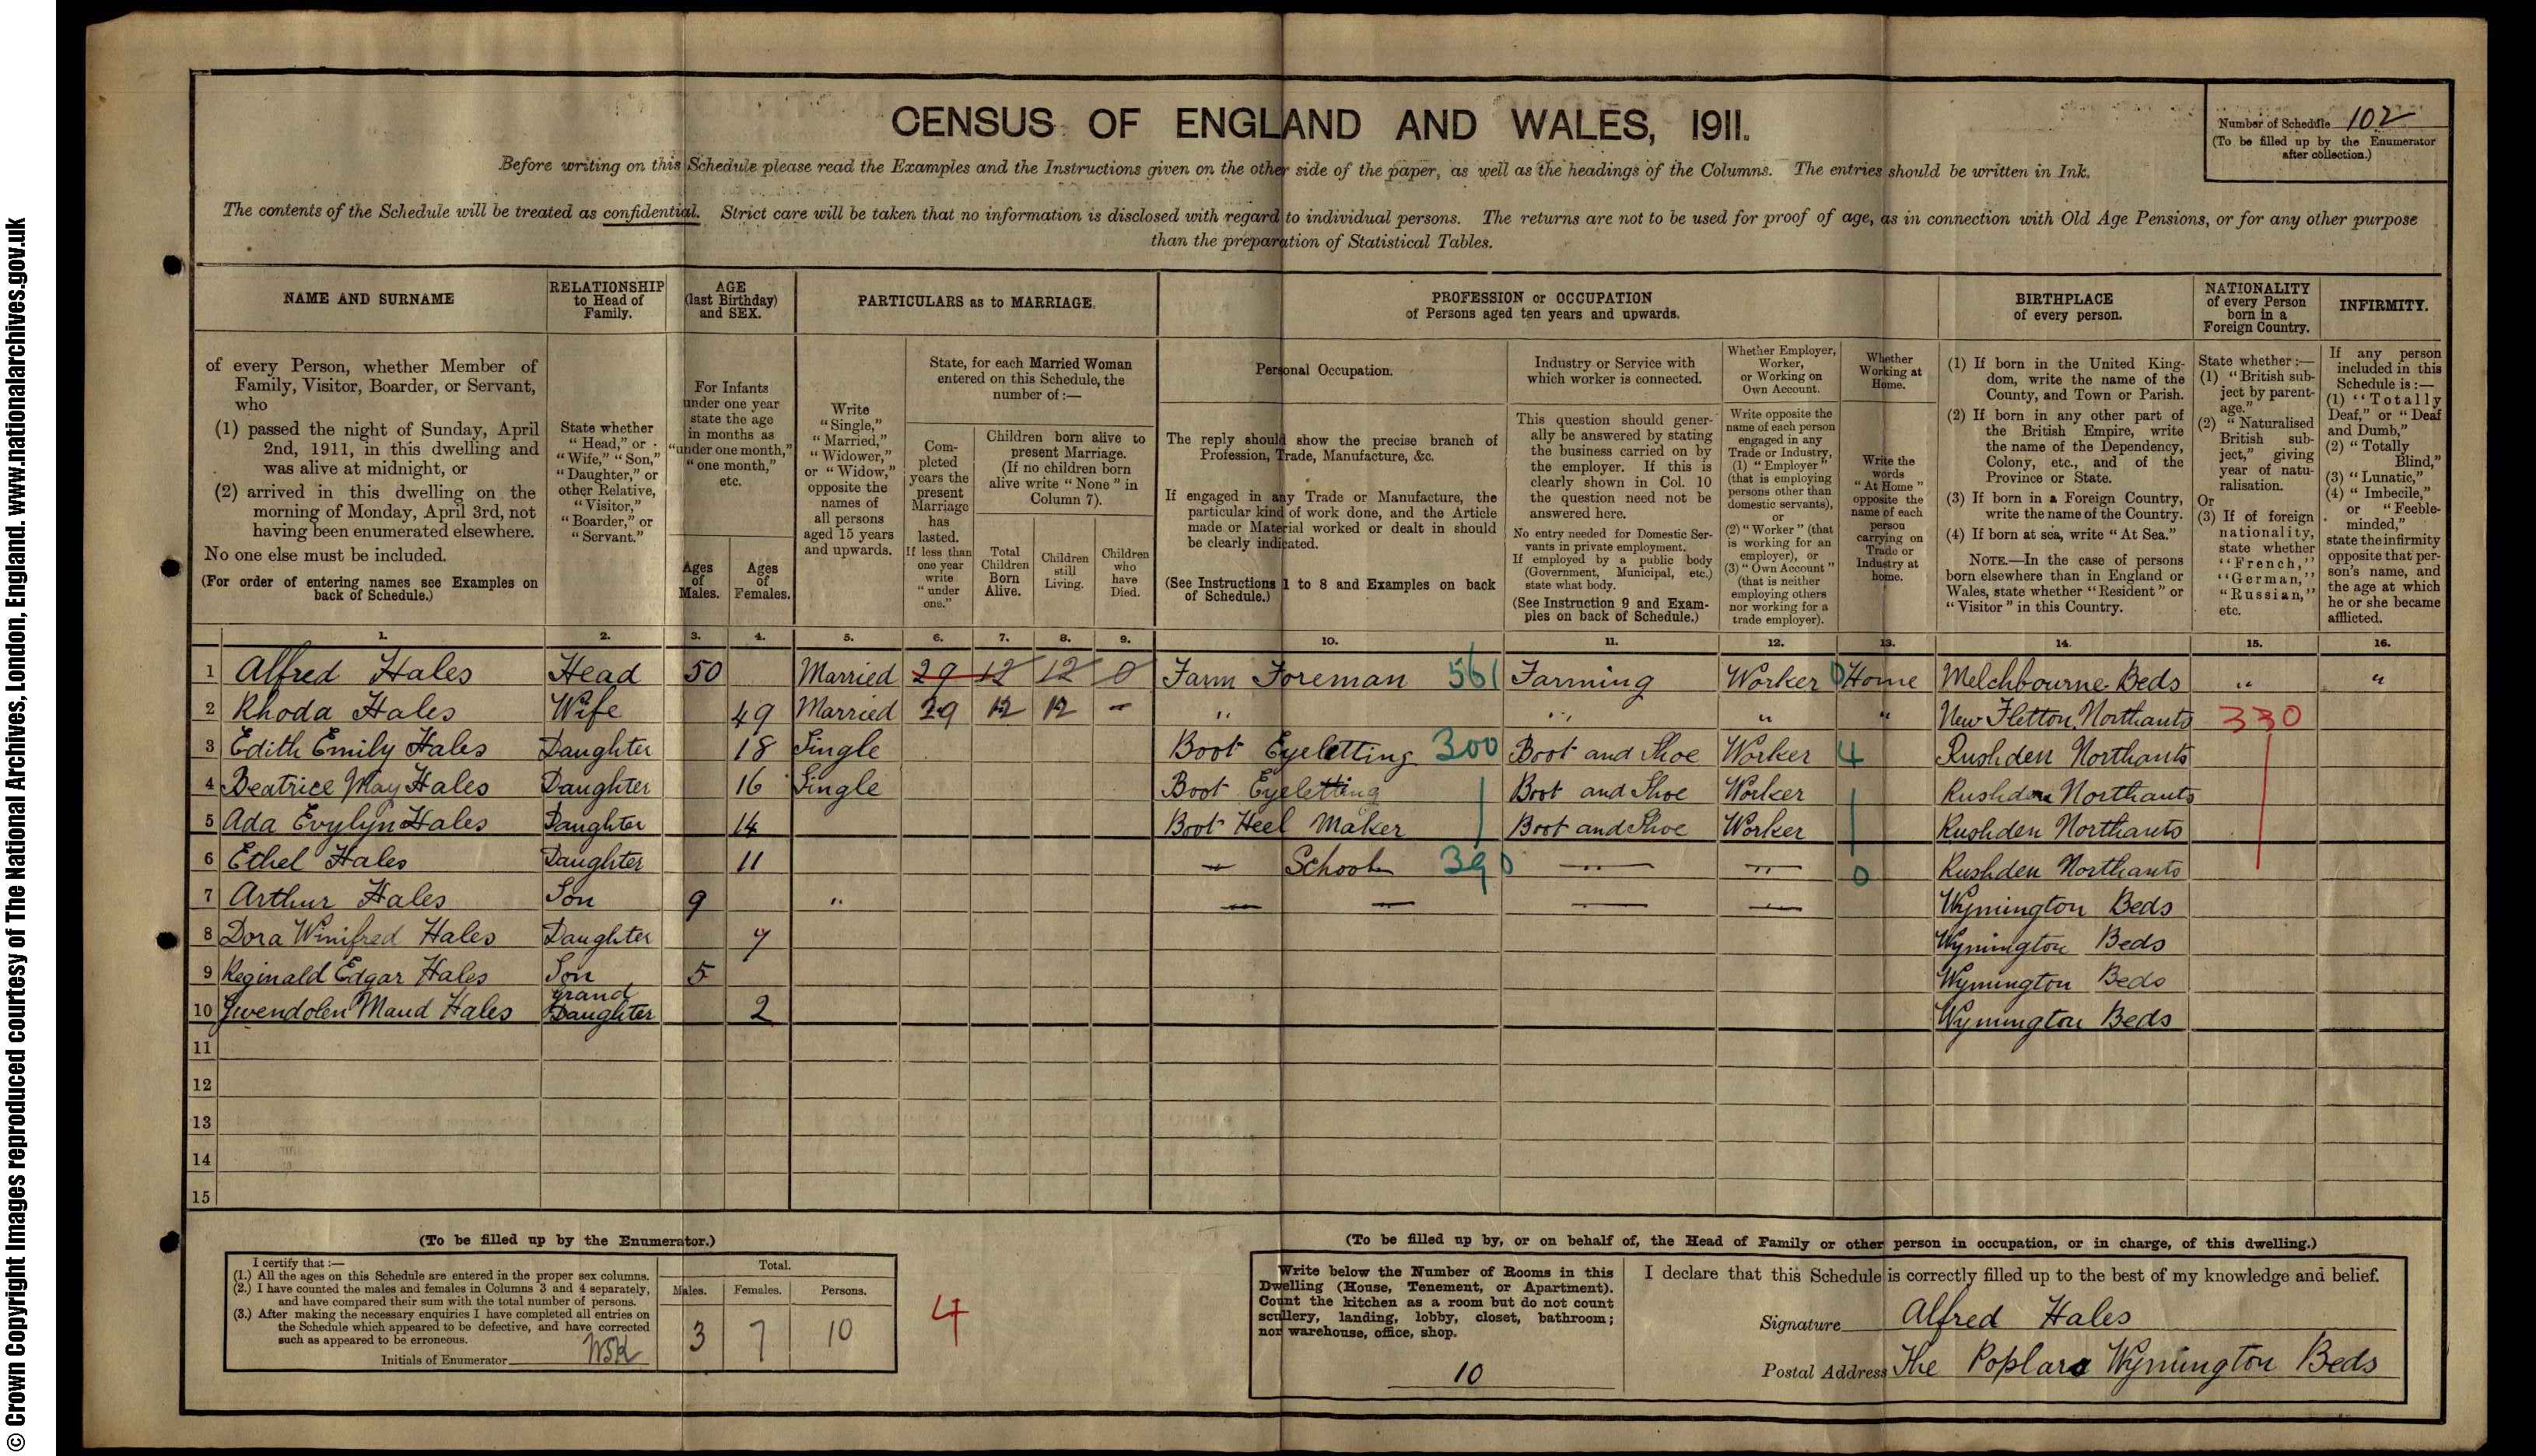 © Crown Copyright Images reproduced courtesy of The National Archives, London, England. www.nationalarchives.gov.uk
CENSUS OF ENGLAND AND WALES, 1911.
Number of Schedule 102
(To be filled up by the Enumerator
after collection.)
Before writing on this Schedule please read the Examples and the Instructions given on the other side of the paper, as well as the headings of the Columns. The entries should be written in Ink.
The contents of the Schedule will be treated as confidential. Strict care will be taken that no information is disclosed with regard to individual persons. The returns are not to be used for proof of age, as in connection with Old Age Pensions, or for any other purpose
than the preparation of Statistical Tables.
NAME AND SURNAME
of every Person, whether Member of
Family, Visitor, Boarder, or Servant,
who
(1) passed the night of Sunday, April
2nd, 1911, in this dwelling and
was alive at midnight, or
(2) arrived in this dwelling on the
morning of Monday, April 3rd, not
having been enumerated elsewhere.
No one else must be included.
(For order of entering names see Examples on
back of Schedule.)
RELATIONSHIP
to Head of
Family.
State whether
"Head," or
"Wife," "Son,"
"Daughter," or
other Relative,
"Visitor,"
"Boarder," or
"Servant."
AGE
(last Birthday)
and SEX.
For Infants
under one year
state the age
in months as
"under one month,"
"one month,"
etc.
Ages
of
Males.
Ages
of
Females.
PARTICULARS as to MARRIAGE.
Write
"Single,"
"Married,"
"Widower,"
or "Widow,"
opposite the
names of
all persons
aged 15 years
and upwards.
State, for each Married Woman
entered on this Schedule, the
number of :—
Com-
pleted
years the
present
Marriage
has
lasted.
If less than
one year
write
"under
one."
Children born alive to
present Marriage.
(If no children born
alive write "None" in
Column 7).
Total
Children
Born
Alive.
Children
still
Living.
Children
who
have
Died.
PROFESSION or OCCUPATION
of Persons aged ten years and upwards.
Personal Occupation.
The reply should show the precise branch of
Profession, Trade, Manufacture, &c.
If engaged in any Trade or Manufacture, the
particular kind of work done, and the Article
made or Material worked or dealt in should
be clearly indicated.
(See Instructions 1 to 8 and Examples on back
of Schedule.)
Industry or Service with
which worker is connected.
This question should gener-
ally be answered by stating
the business carried on by
the employer. If this is
clearly shown in Col. 10
the question need not be
answered here.
No entry needed for Domestic Ser-
vants in private employment.
If employed by a public body
(Government, Municipal, etc.)
state what body.
(See Instruction 9 and Exam-
ples on back of Schedule.)
Whether Employer,
Worker,
or Working on
Own Account.
Write opposite the
name of each person
engaged in any
Trade or Industry,
(1) "Employer"
(that is employing
persons other than
domestic servants),
or
(2) "Worker" (that
is working for an
employer), or
(3) "Own Account"
(that is neither
employing others
nor working for a
trade employer).
Whether
Working at
Home.
Write the
words
"At Home"
opposite the
name of each
person
carrying on
Trade or
Industry at
home.
BIRTHPLACE
of every person.
(1) If born in the United King-
dom, write the name of the
County, and Town or Parish.
(2) If born in any other part of
the British Empire, write
the name of the Dependency,
Colony, etc., and of the
Province or State.
(3) If born in a Foreign Country,
write the name of the Country.
(4) If born at sea, write "At Sea."
NOTE.—In the case of persons
born elsewhere than in England or
Wales, state whether "Resident" or
"Visitor" in this Country.
NATIONALITY
of every Person
born in a
Foreign Country.
State whether :—
(1) "British sub-
ject by parent-
age."
(2) "Naturalised
British sub-
ject," giving
year of natu-
ralisation.
Or
(3) If of foreign
nationality,
state whether
"French,"
"German,"
"Russian,"
etc.
INFIRMITY.
If any person
included in this
Schedule is :—
(1) "Totally
Deaf," or "Deaf
and Dumb,"
(2) "Totally
Blind,"
(3) "Lunatic,"
(4) "Imbecile,"
or "Feeble-
minded,"
state the infirmity
opposite that per-
son's name, and
the age at which
he or she became
afflicted.
1. 2. 3. 4. 5. 6. 7. 8. 9. 10. 11. 12. 13. 14. 15. 16.
1 Alfred Hales Head 50 Married 29 12 12 0 Farm Foreman 561 Farming Worker 0 Home Melchbourne Beds " "
2 Rhoda Hales Wife 49 Married 29 12 12 — " " " " New Fletton Northants 330
3 Edith Emily Hales Daughter 18 Single Boot Eyeletting 300 Boot and Shoe Worker 4 Rushden Northants
4 Beatrice May Hales Daughter 16 Single Boot Eyeletting Boot and Shoe Worker Rushden Northants
5 Ada Evylyn Hales Daughter 14 Boot Heel Maker Boot and Shoe Worker Rushden Northants
6 Ethel Hales Daughter 11 — School 390 — — 0 Rushden Northants
7 Arthur Hales Son 9 " — — — — Wymington Beds
8 Dora Winifred Hales Daughter 7 Wymington Beds
9 Reginald Edgar Hales Son 5 Wymington Beds
10 Gwendolen Maud Hales grand Daughter 2 Wymington Beds
11
12
13
14
15
(To be filled up by the Enumerator.)
I certify that :—
(1.) All the ages on this Schedule are entered in the proper sex columns.
(2.) I have counted the males and females in Columns 3 and 4 separately,
and have compared their sum with the total number of persons.
(3.) After making the necessary enquiries I have completed all entries on
the Schedule which appeared to be defective, and have corrected
such as appeared to be erroneous.
Initials of Enumerator
Total.
Males. Females. Persons.
3 7 10
4
(To be filled up by, or on behalf of, the Head of Family or other person in occupation, or in charge, of this dwelling.)
Write below the Number of Rooms in this
Dwelling (House, Tenement, or Apartment).
Count the kitchen as a room but do not count
scullery, landing, lobby, closet, bathroom;
nor warehouse, office, shop.
10
I declare that this Schedule is correctly filled up to the best of my knowledge and belief.
Signature Alfred Hales
Postal Address The Poplars Wymington Beds